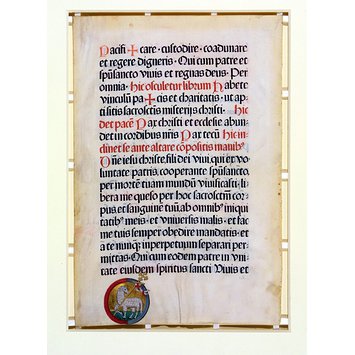 Pacifi + care · custodire · coadunare
et regere digneris · Qui cum patre et
spūsancto vivis et regnas deus · Per
omnia · hic osculetur librum habete
vinculū pa+cis et charitatis · ut ap-
ti sitis sacrosctis misterijs christi · hic
det pacē Pax christi et ecclesie abun-
det in cordibus nr̄is Pax tecū hic in-
clinet se ante altare cōpositis manibꝰ
Dn̄e iesu christe fili dei vivi qui et vo-
luntate patris, cooperante spūsancto,
per mortē tuam mundū vivificasti: li-
bera me queso per hoc sacrosctm cor-
pus et sanguinē tuū, ab omnibꝰ iniqui
tatibꝰ meis · et vniversis malis · et fac
me tuis semper obedire mandatis · et
a te nunqꝫ inperpetuum separari per-
mittas · Qui cum eodem patre in vni-
tate eiusdem spiritus sancti Vivis et